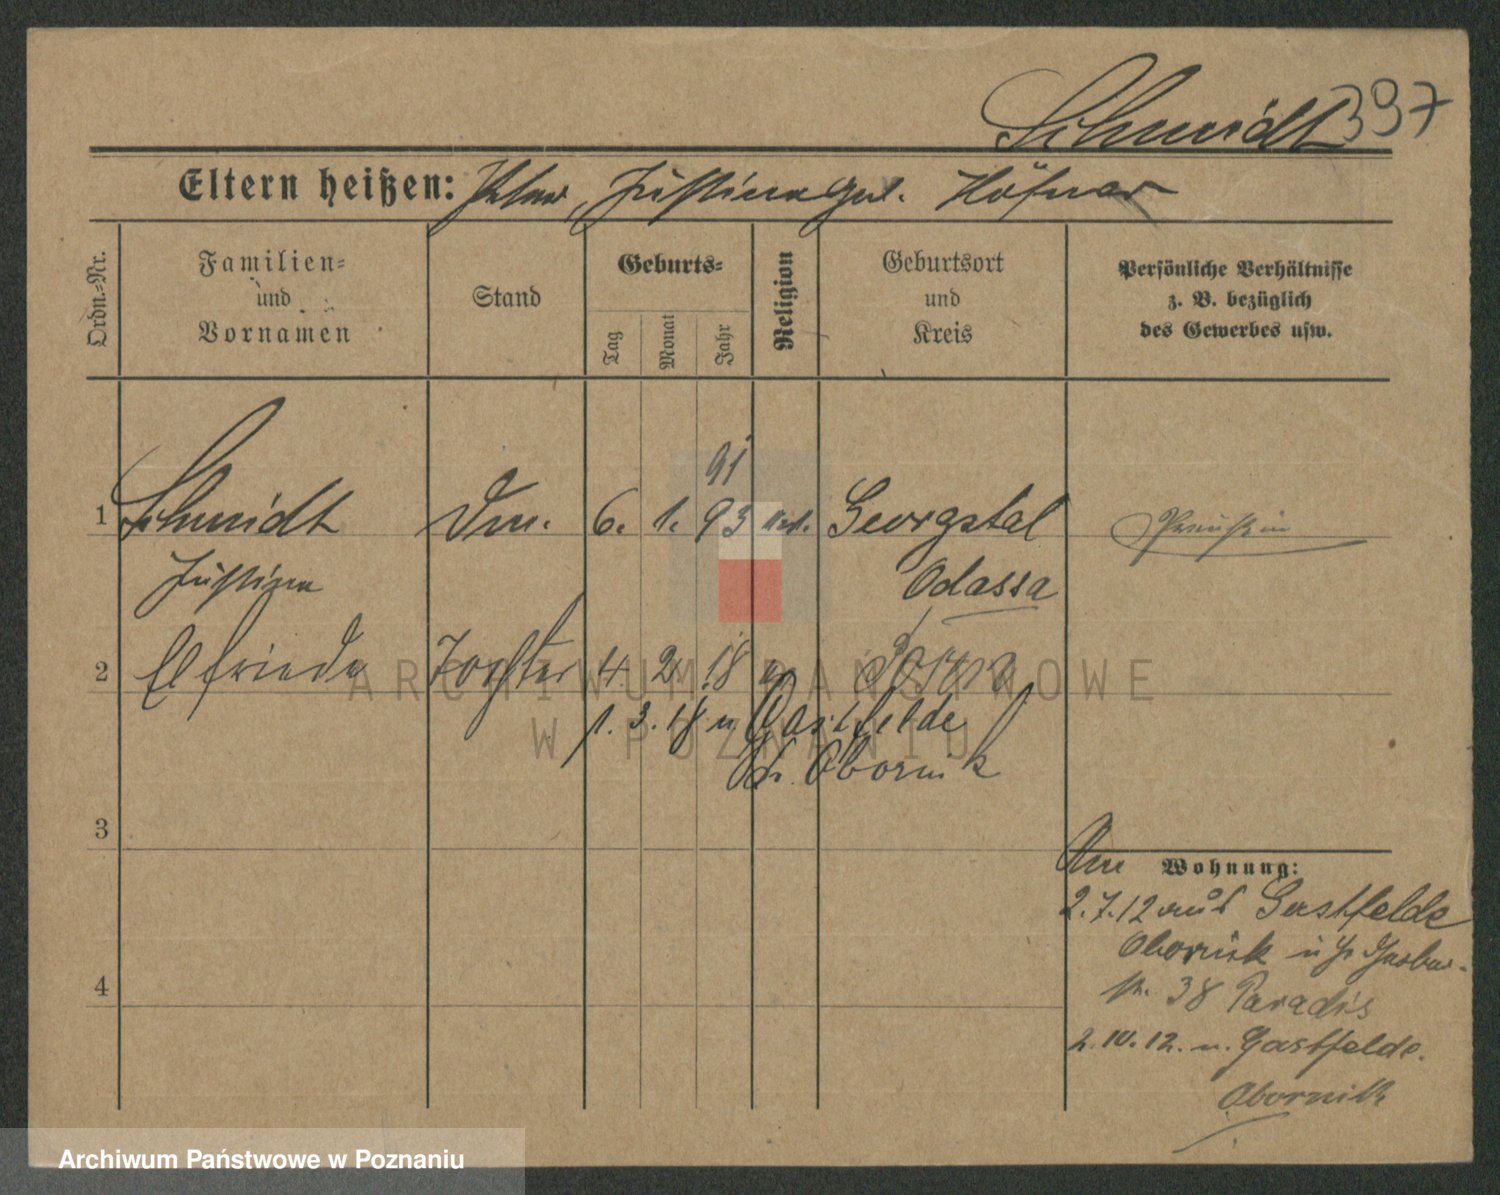 Schmidt 397
Eltern heißen: Peter, Justine geb. Höfner
Ordn.-Nr.
Familien-
und
Vornamen
Stand
Geburts-
Tag
Monat
Jahr
Religion
Geburtsort
und
Kreis
Persönliche Verhältnisse
z. B. bezüglich
des Gewerbes usw.
91
1 Schmidt 6. 1. 93 Georgstal
Preußin
Justine Odassa
2 Elfriede Tochter 4. 2. 18 Posen
1. 3. 18 n. Gastfelde
Obornik
3
Wohnung:
2.7.12 aus Gastfelde
Obornik
38 Paradis
4
2.10.12. n. Gastfelde.
Obornik
ARCHIWUM PAŃSTWOWE
W POZNANIU
Archiwum Państwowe w Poznaniu